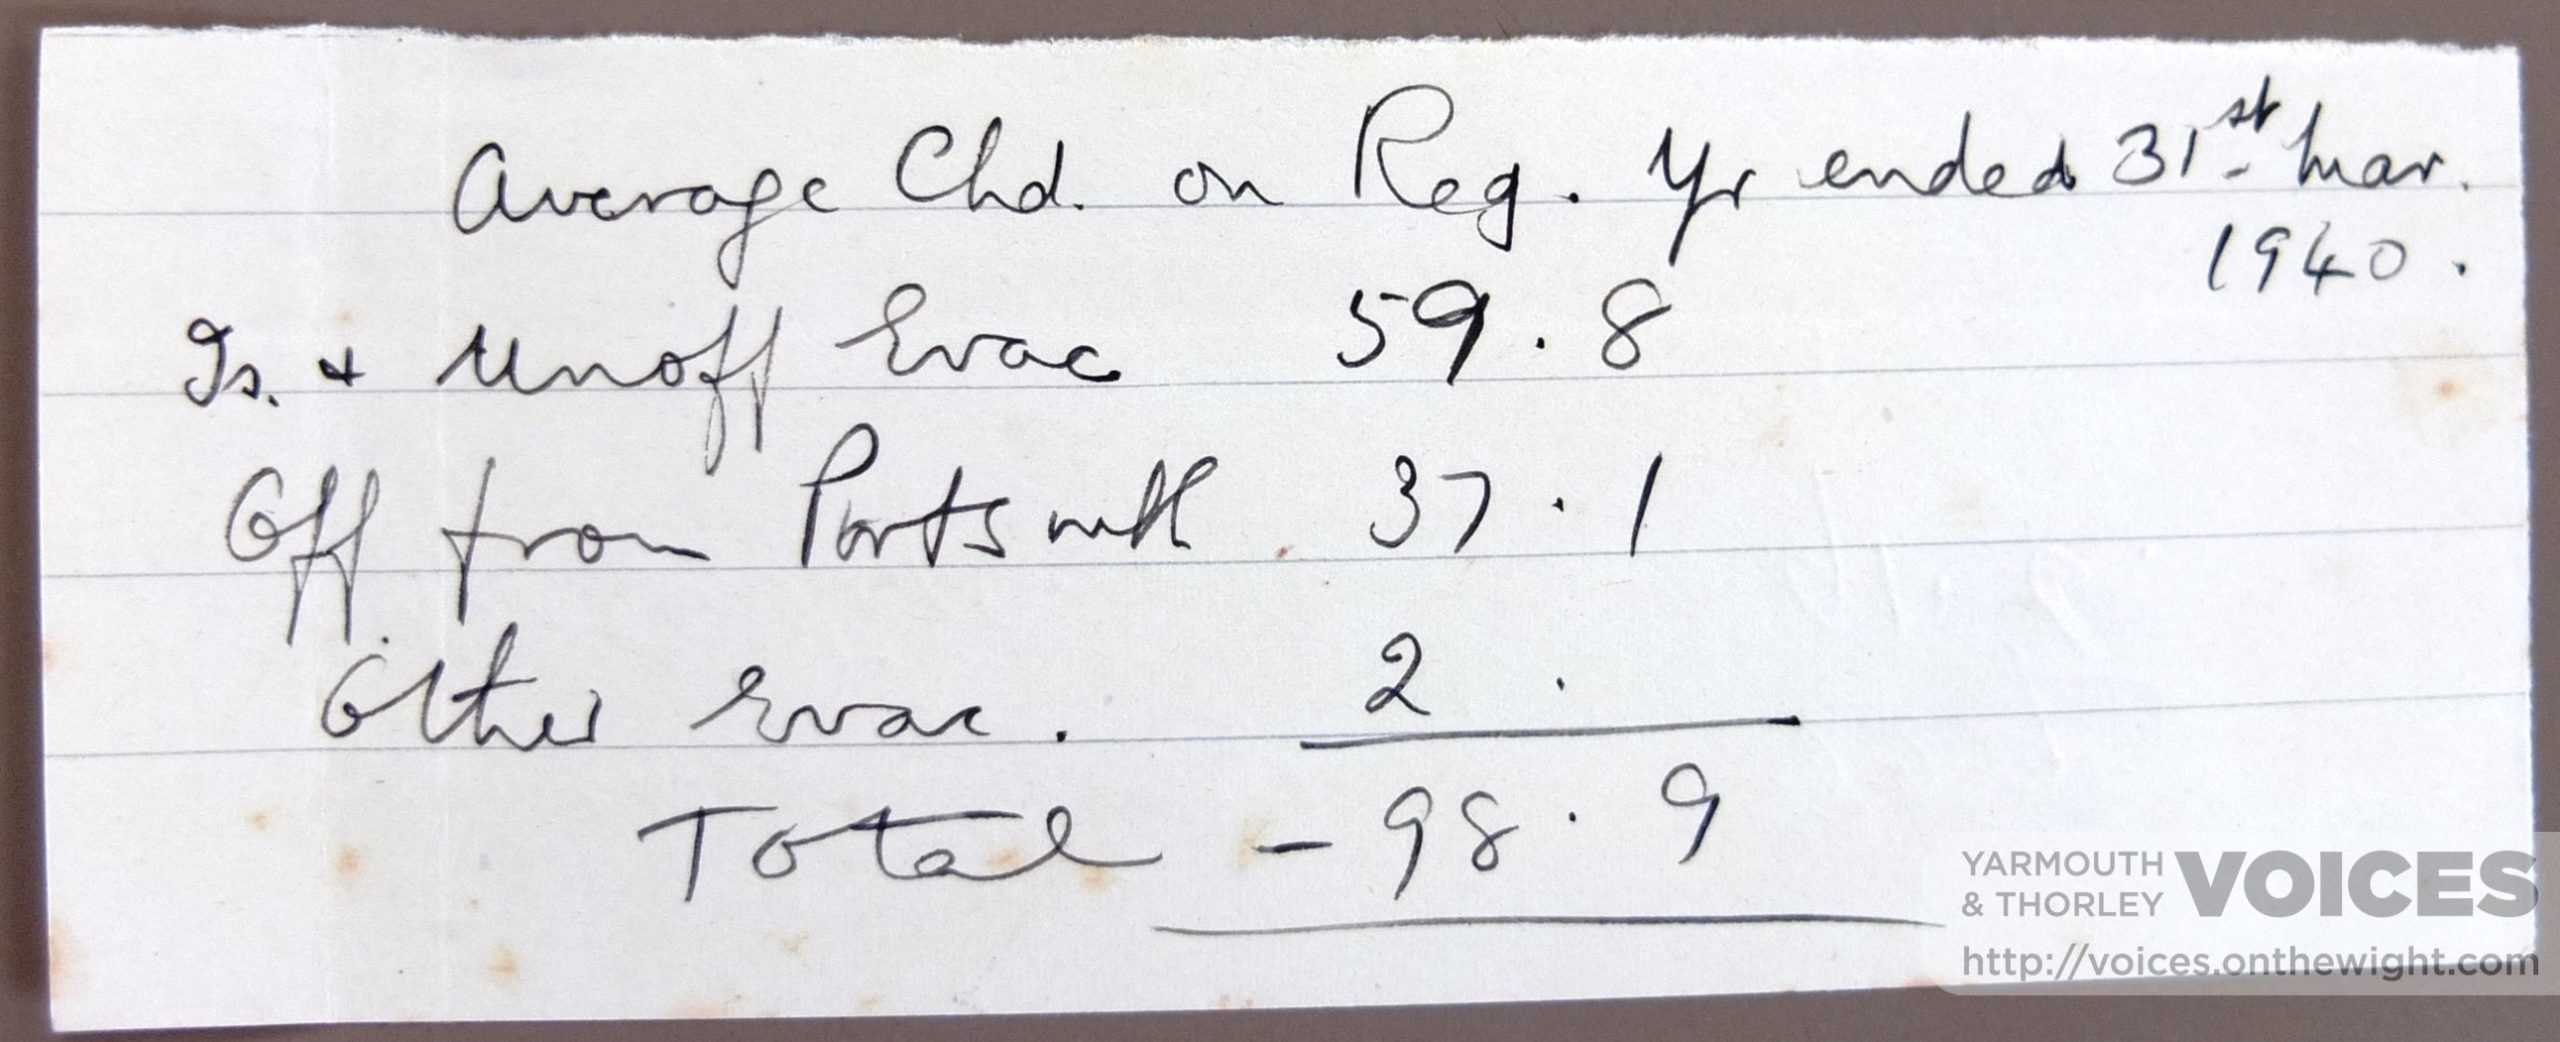 Average Chd. on Reg. Yr ended 31st Mar.
1940.
Is. & Unoff Evac 59.8
Off. from Portsmth. 37.1
Other Evac. 2 .
Total - 98.9
YARMOUTH & THORLEY VOICES
http://voices.onthewight.com